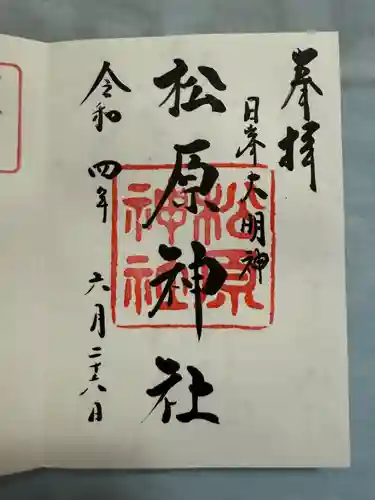 奉拝
日峯大明神
松原神社
松原
神社
令和四年六月二十八日